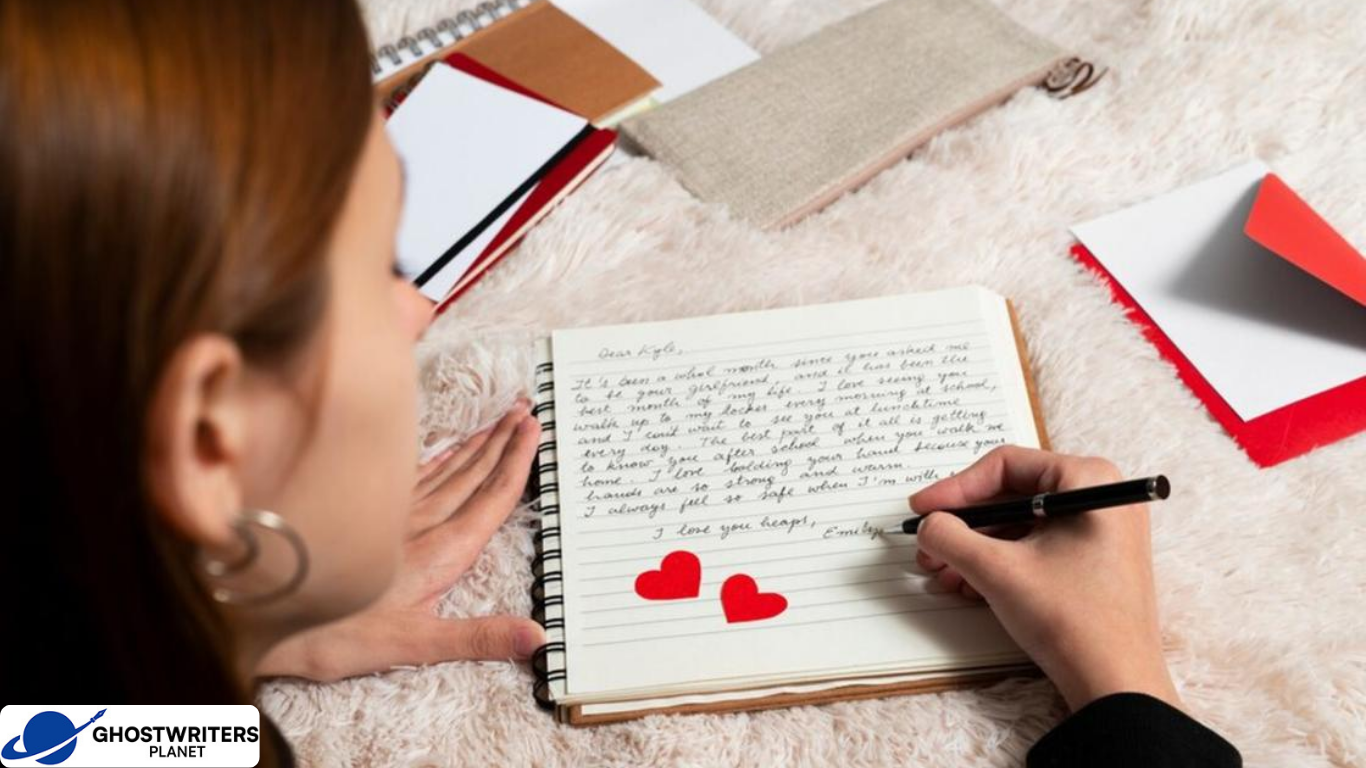 Dear Kyle,
It's been a whole month since you asked me
to be your girlfriend, and it has been the
best month of my life. I love seeing you
walk up to my locker every morning at school,
and I can't wait to see you at lunchtime
every day. The best part of it all is getting
to know you after school when you walk me
home. I love holding your hand because your
hands are so strong and warm.
I always feel so safe when I'm with
I love you heaps,
Emily
GHOSTWRITERS
PLANET